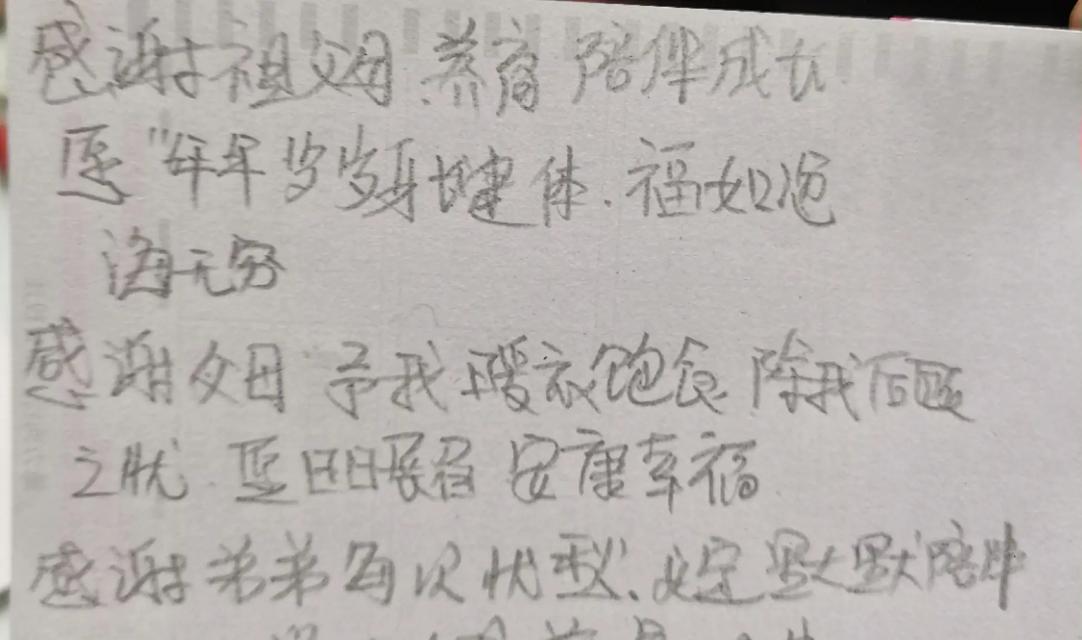 感谢祖父母 养育 陪伴成长
愿"年年岁岁身健体.福如沧
海无穷
感谢父母 予我暖衣饱食 除我后顾
之忧 愿日日展眉 安康幸福
感谢弟弟每次 默默陪伴